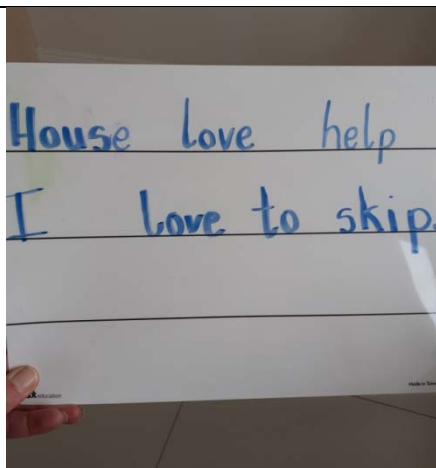 House love help
I love to skip.
education